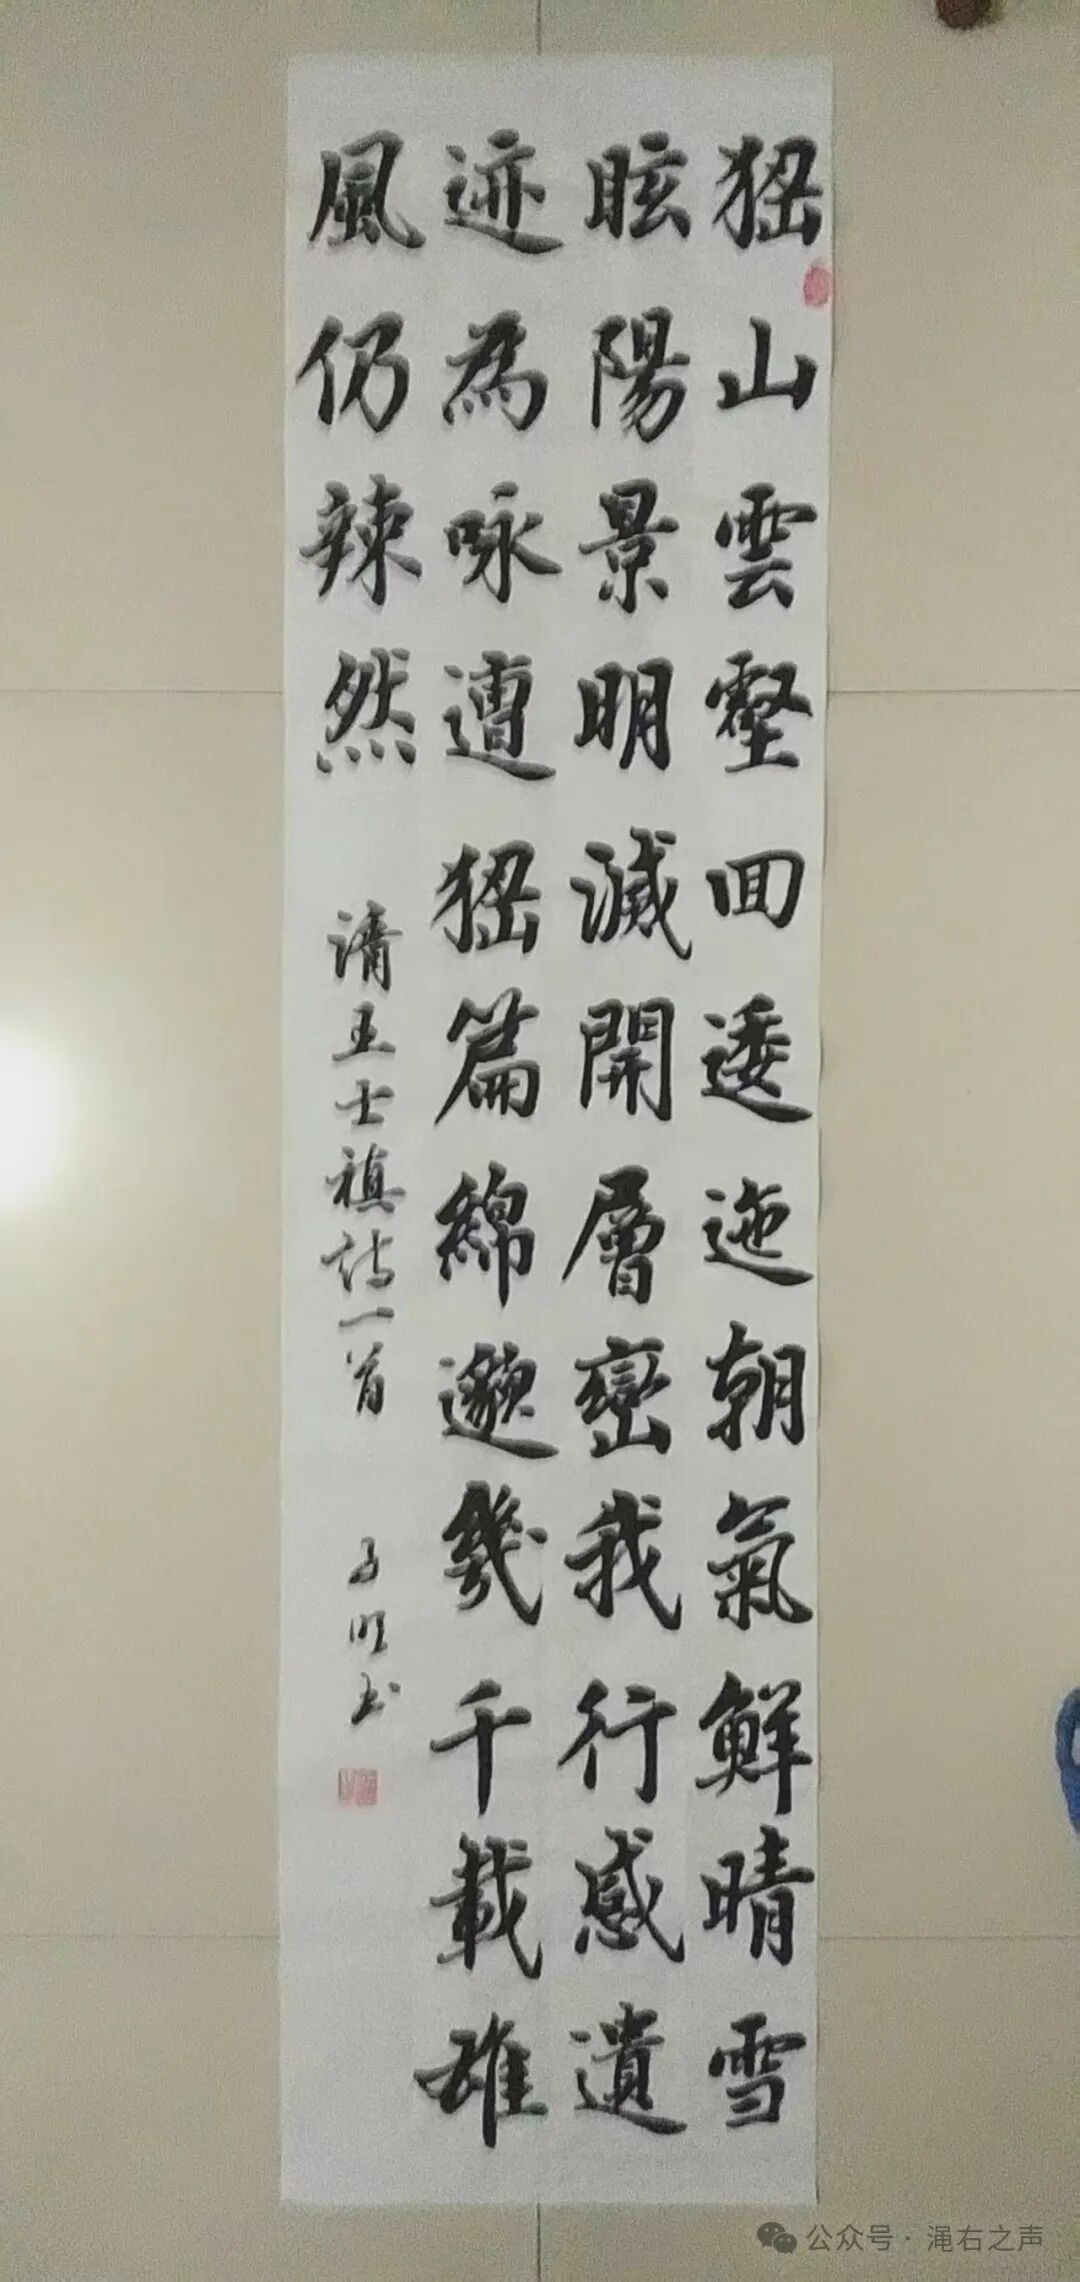 猺山雲壑回逶迤朝氣鮮晴雪
眩陽景明滅開層巒我行感遺
迹為咏遭猺篇綿邈幾千載雄
風仍辣然
清王士禛詩一首
子明书
公众号·渑右之声